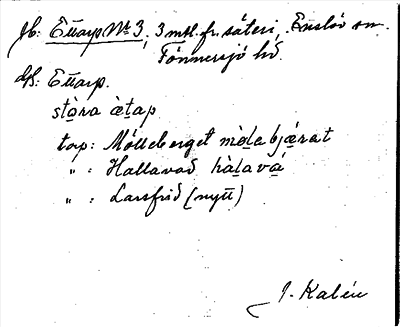 Jb: Ettarp Nr 3, 3 mtl. fr. säteri, Enslöv sn.
Tönnersjö hd.
Gk: Ettarp.
stòra ætap
top: Mölleberget mø̀ləbjæ̀rat
" : Hallavad hàlavá
" : Larsfrid (nytt)
J. Kalén